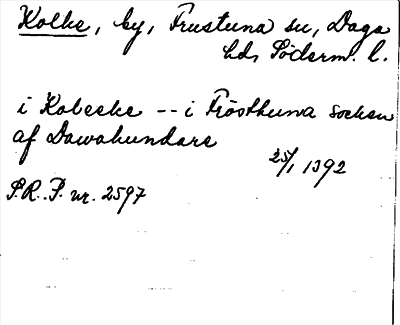 Kolke, by, Frustuna sn, Daga
hd, Söderm. l.
i Kobeske -- i Frösthuna socken
af Dawahundare
25/1 1392
S.R.P. nr. 2597